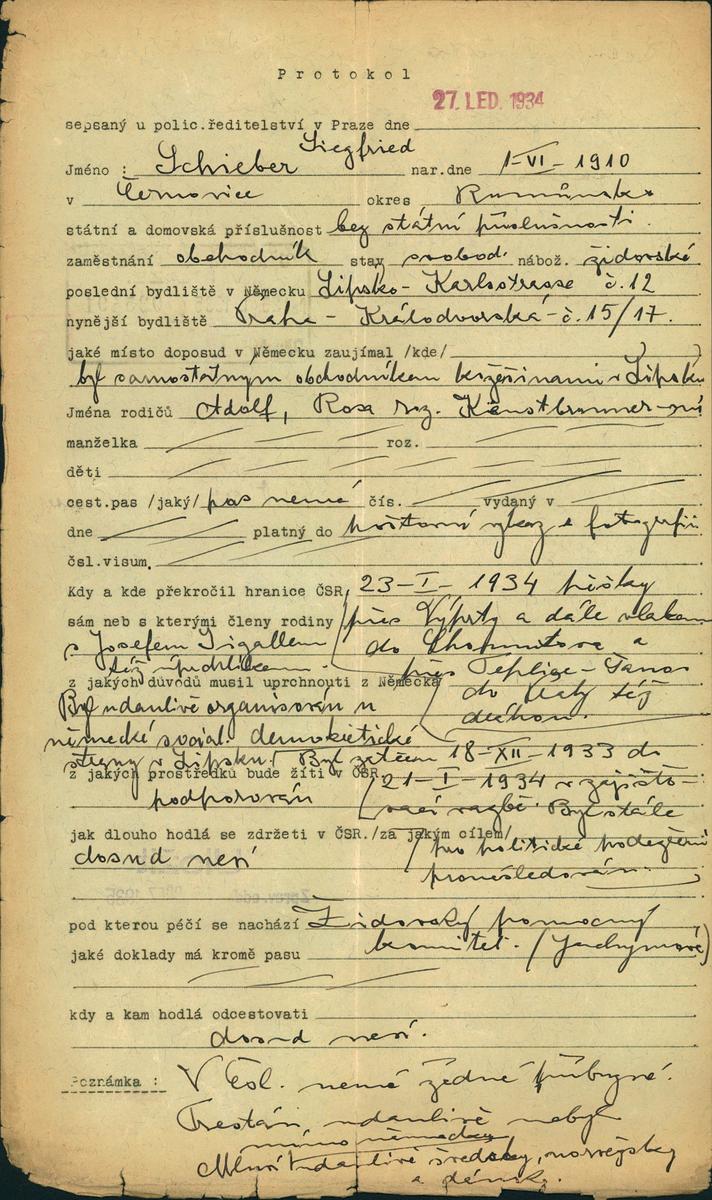 Protokol
27. LED. 1934
sepsaný u polic.ředitelství v Praze dne
Jméno : Schieber Siegfried nar.dne 1-VI-1910
v Černovice okres Rumunsko
státní a domovská příslušnost bez státní příslušnosti.
zaměstnání obchodník stav svobod. nábož. židovské
poslední bydliště v Německu Lipsko - Karlsstrasse č.12
nynější bydliště Praha - Králodvorská - č.15/17.
jaké místo doposud v Německu zaujímal /kde/
byl samostatným obchodníkem v Lipsku
Jména rodičů Adolf, Rosa roz.
manželka roz.
děti
cest.pas /jaký/ pas nemá čís. vydaný v
dne platný do poštovní výkaz s fotografií
čsl.visum
Kdy a kde překročil hranice ČSR 23-I-1934 pěšky
sám neb s kterými členy rodiny přes Výprty a dále vlakem
s Josefem Sigallem do Chomutova a
též uprchlíkem. přes Teplice-Šanov
z jakých důvodů musil uprchnouti z Německa do Prahy též
Byl údanlivě organisován u
německé sociál. demokratické
strany v Lipsku. Byl zatčen 18-XII-1933 do
z jakých prostředků bude žíti v ČSR 21-I-1934 v zajišťo-
podporován vací vazbě. Byl stále
jak dlouho hodlá se zdržeti v ČSR./za jakým cílem/ pro politické podezření
dosud neví pronásledován.
pod kterou péčí se nachází Židovský pomocný
jaké doklady má kromě pasu komitét. (Jachymova)
kdy a kam hodlá odcestovati
dosud neví.
Poznámka : V Čsl. nemá žádné příbuzné.
Trestán údanlivě nebyl
mimo německy
Mluví údanlivě švédsky, norvéjsky
a dánsky.